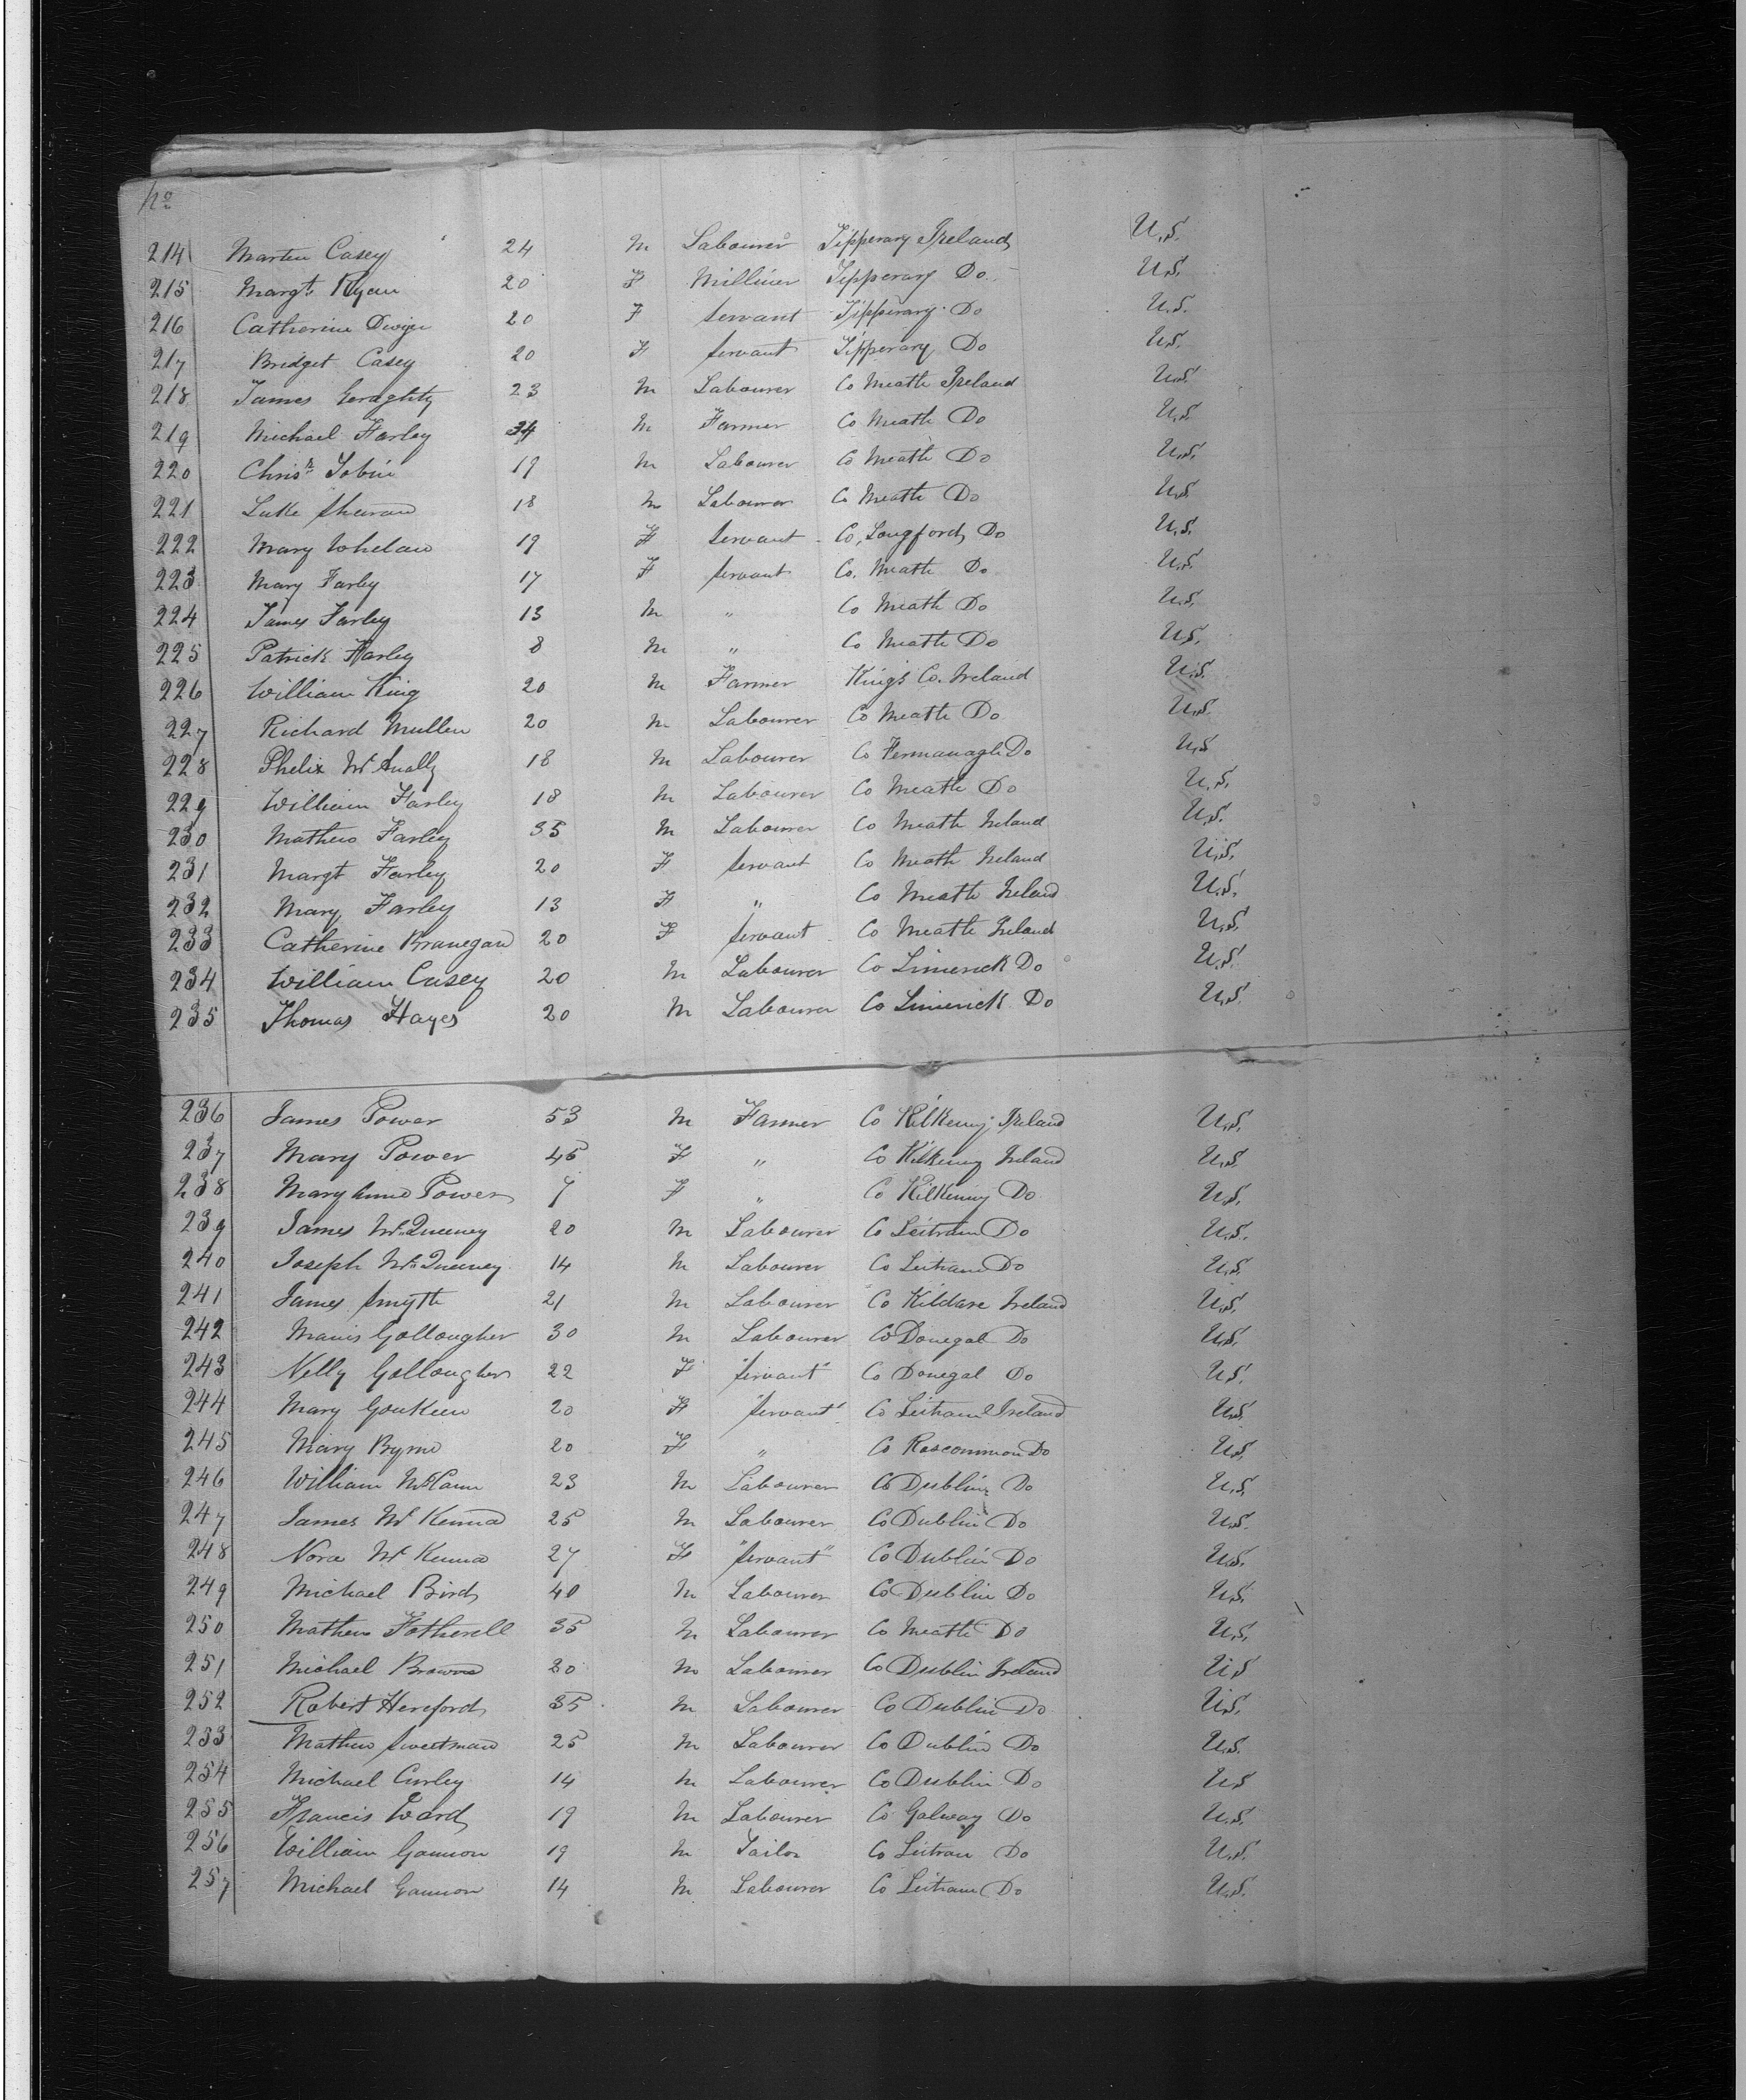 No
214 Marten Casey 24 M Labourer Tipperary Ireland U.S.
215 Margt Ryan 20 F Milliner Tipperary Do U.S.
216 Catherine Dwyer 20 F Servant Tipperary Do U.S.
217 Bridget Casey 20 F Servant Tipperary Do U.S.
218 James Geraghty 23 M Labourer Co Meath Ireland U.S.
219 Michael Farley 34 M Farmer Co Meath Do U.S.
220 Chrisr Tobin 19 M Labourer Co Meath Do U.S.
221 Luke 18 M Labourer Co Meath Do U.S.
222 Mary Whelan 19 F Servant Co, Longford Do U.S.
223 Mary Farley 17 F Servant Co. Meath Do U.S.
224 James Farley 13 M " Co Meath Do U.S.
225 Patrick Farley 8 M " Co Meath Do U.S.
226 William King 20 M Farmer Kings Co. Ireland U.S.
227 Richard Mullen 20 M Labourer Co Meath Do U.S.
228 Phelix McAnally 18 M Labourer Co Fermanagh Do U.S
229 William Farley 18 M Labourer Co Meath Do U.S.
230 Mathew Farley 35 M Labourer Co Meath Ireland U.S.
231 Margt Farley 20 F Servant Co Meath Ireland U.S.
232 Mary Farley 13 F " Co Meath Ireland U.S.
233 Catherine Branegan 20 F Servant Co Meath Ireland U.S.
234 William Casey 20 M Labourer Co Limerick Do U.S.
235 Thomas Hayes 20 M Labourer Co Limerick Do U.S.
236 James Power 53 M Farmer Co Kilkenny Ireland U.S.
237 Mary Power 45 F " Co Kilkenny Ireland U.S.
238 Mary Anne Power 7 F " Co Kilkenny Do U.S.
239 James McQueeney 20 M Labourer Co Leitram Do U.S.
240 Joseph McQueeney 14 M Labourer Co Leitram Do U.S.
241 James Smyth 21 M Labourer Co Kildare Ireland U.S.
242 Manis Gollougher 30 M Labourer Co Donegal Do U.S.
243 Nelly Gollougher 22 F "Servant" Co Donegal Do U.S.
244 Mary 20 F "Servant" Co Leitram Ireland U.S.
245 Mary Byrne 20 F " Co Roscommon Do U.S.
246 William McCann 23 M Labourer Co Dublin Do U.S.
247 James McKenna 25 M Labourer Co Dublin Do U.S.
248 Nora McKenna 27 F "Servant" Co Dublin Do U.S.
249 Michael Bird 40 M Labourer Co Dublin Do U.S.
250 Mathew Fotherell 35 M Labourer Co Meath Do U.S.
251 Michael Browne 30 M Labourer Co Dublin Ireland U.S
252 Robert Hereford 35 M Labourer Co Dublin Do U.S.
233 Mathew Sweetman 25 M Labourer Co Dublin Do U.S.
254 Michael Curley 14 M Labourer Co Dublin Do U.S
255 Francis Ward 19 M Labourer Co Galway Do U.S.
256 William Gannon 19 M Tailor Co Leitram Do U.S.
257 Michael Gannon 14 M Labourer Co Leitram Do U.S.